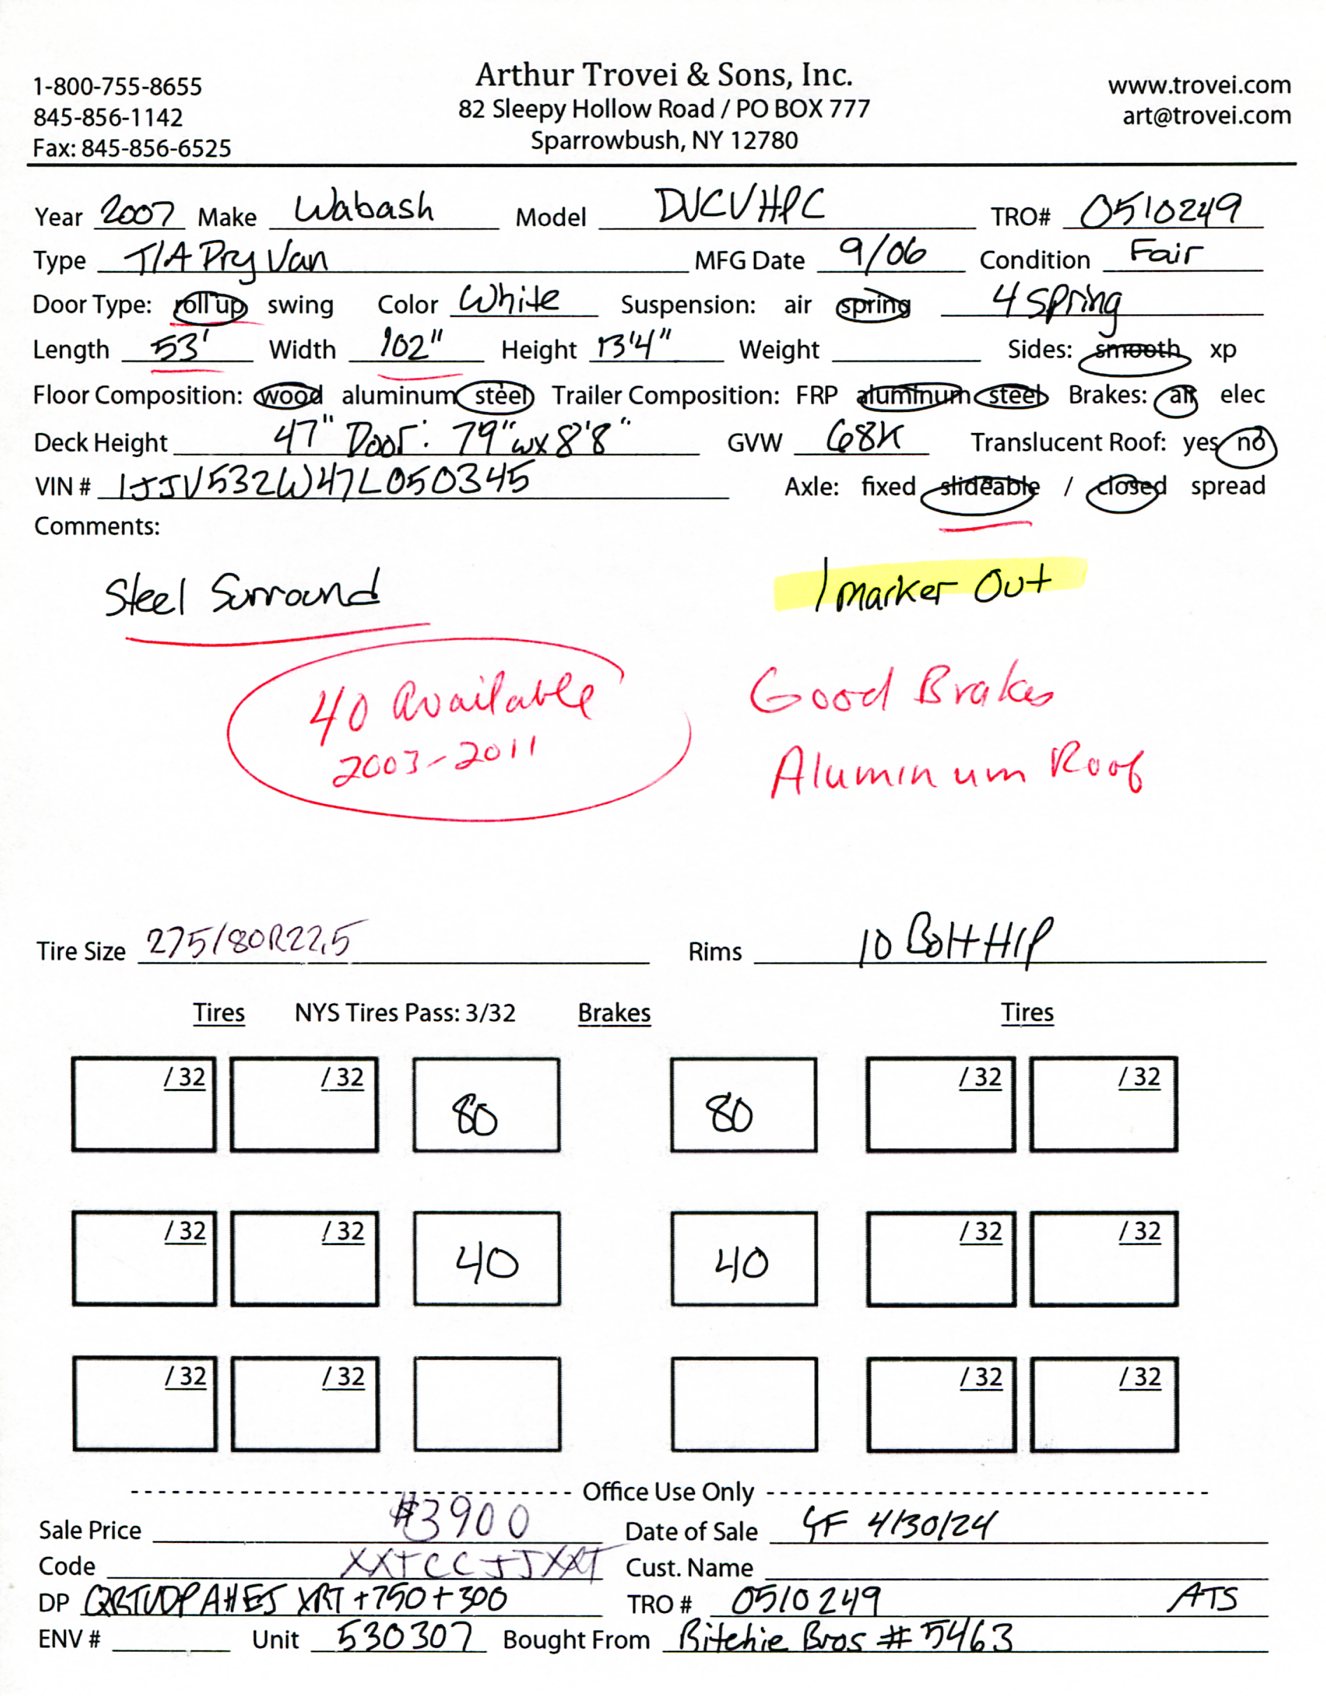 Arthur Trovei & Sons, Inc.
1-800-755-8655 82 Sleepy Hollow Road / PO BOX 777 www.trovei.com
845-856-1142 Sparrowbush, NY 12780 art@trovei.com
Fax: 845-856-6525
Year 2007 Make Wabash Model DVCVHPC TRO# 0510249
Type T/A Dry Van MFG Date 9/06 Condition Fair
Door Type: roll up swing Color White Suspension: air spring 4 Spring
Length 53' Width 102" Height 13'4" Weight Sides: smooth xp
Floor Composition: wood aluminum steel Trailer Composition: FRP aluminum steel Brakes: air elec
Deck Height 47" Door: 79"w x 8'8" GVW 68K Translucent Roof: yes no
VIN # 1JJV532W47L050345 Axle: fixed slideable / closed spread
Comments:
Steel Surround 1 marker Out
40 Available Good Brakes
2003-2011 Aluminum Roof
Tire Size 275/80R22.5 Rims 10 Bolt H/P
Tires NYS Tires Pass: 3/32 Brakes Tires
/ 32 / 32 80 80 / 32 / 32
/ 32 / 32 40 40 / 32 / 32
/ 32 / 32 / 32 / 32
Office Use Only
Sale Price $3900 Date of Sale GF 4/30/24
Code Cust. Name
DP +750+300 TRO # 0510249 ATS
ENV # Unit 530307 Bought From Ritchie Bros # 5463